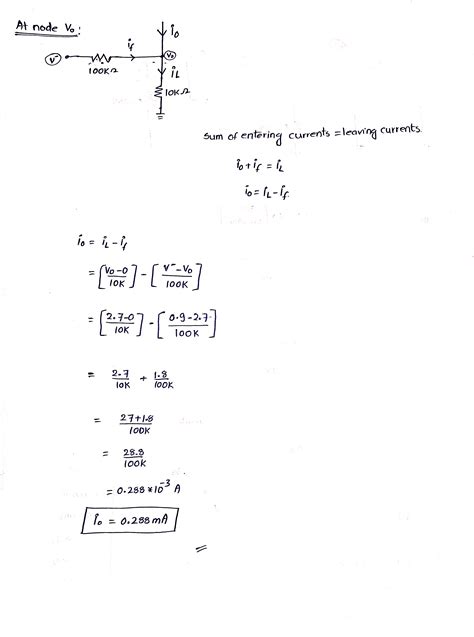 At node Vo:
io
if
V⁻
Vo
100KΩ
iL
10KΩ
Sum of entering currents = leaving currents.
io + if = iL
io = iL - if.
io = iL - if
= [Vo-0/10K] - [V⁻-Vo/100K]
= [2.7-0/10K] - [0.9-2.7/100K]
= 2.7/10K + 1.8/100K
= 27+1.8/100K
= 28.8/100K
= 0.288 * 10⁻³ A
io = 0.288 mA